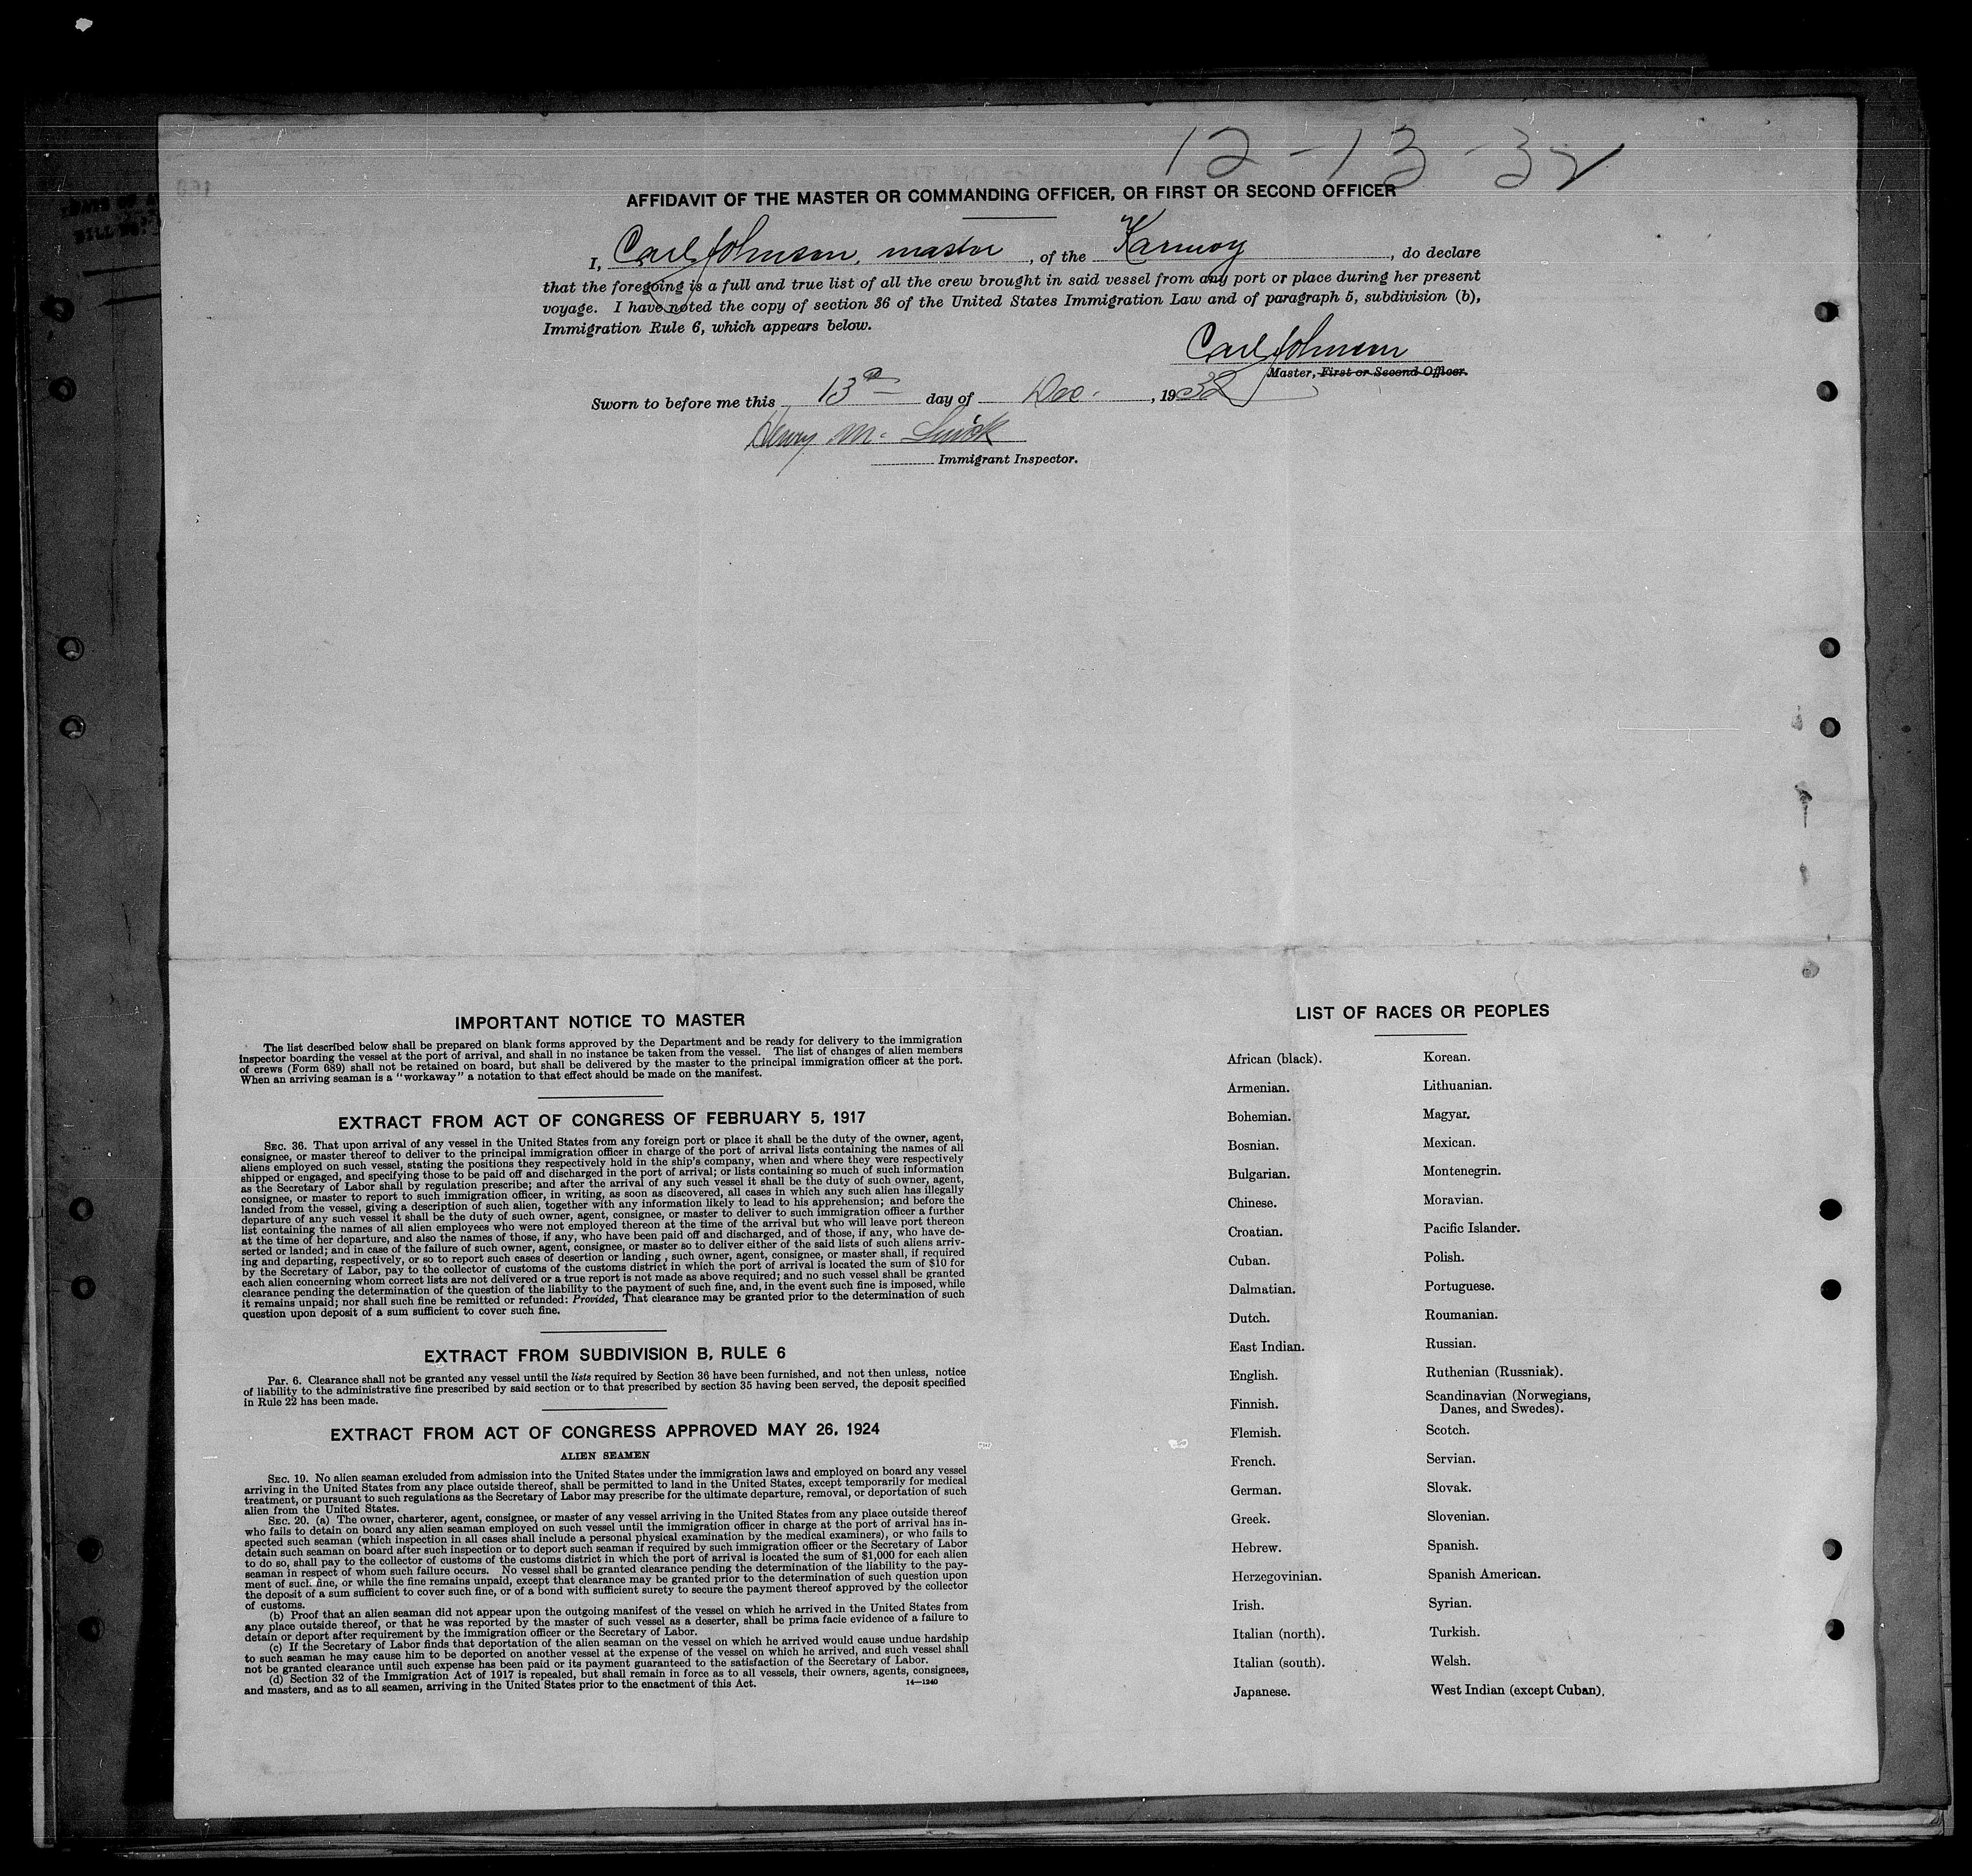 12-13-32
AFFIDAVIT OF THE MASTER OR COMMANDING OFFICER, OR FIRST OR SECOND OFFICER
I, Carl Johnson, master, of the Karmoy, do declare
that the foregoing is a full and true list of all the crew brought in said vessel from any port or place during her present
voyage. I have noted the copy of section 36 of the United States Immigration Law and of paragraph 5, subdivision (b),
Immigration Rule 6, which appears below.
Carl Johnson
Master, First or Second Officer.
Sworn to before me this 13th day of Dec., 1932
Henry M.
Immigrant Inspector.
IMPORTANT NOTICE TO MASTER
The list described below shall be prepared on blank forms approved by the Department and be ready for delivery to the immigration
inspector boarding the vessel at the port of arrival, and shall in no instance be taken from the vessel. The list of changes of alien members
of crews (Form 689) shall not be retained on board, but shall be delivered by the master to the principal immigration officer at the port.
When an arriving seaman is a "workaway" a notation to that effect should be made on the manifest.
EXTRACT FROM ACT OF CONGRESS OF FEBRUARY 5, 1917
SEC. 36. That upon arrival of any vessel in the United States from any foreign port or place it shall be the duty of the owner, agent,
consignee, or master thereof to deliver to the principal immigration officer in charge of the port of arrival lists containing the names of all
aliens employed on such vessel, stating the positions they respectively hold in the ship's company, when and where they were respectively
shipped or engaged, and specifying those to be paid off and discharged in the port of arrival; or lists containing so much of such information
as the Secretary of Labor shall by regulation prescribe; and after the arrival of any such vessel it shall be the duty of such owner, agent,
consignee, or master to report to such immigration officer, in writing, as soon as discovered, all cases in which any such alien has illegally
landed from the vessel, giving a description of such alien, together with any information likely to lead to his apprehension; and before the
departure of any such vessel it shall be the duty of such owner, agent, consignee, or master to deliver to such immigration officer a further
list containing the names of all alien employees who were not employed thereon at the time of the arrival but who will leave port thereon
at the time of her departure, and also the names of those, if any, who have been paid off and discharged, and of those, if any, who have de-
serted or landed; and in case of the failure of such owner, agent, consignee, or master so to deliver either of the said lists of such aliens arriv-
ing and departing, respectively, or so to report such cases of desertion or landing , such owner, agent, consignee, or master shall, if required
by the Secretary of Labor, pay to the collector of customs of the customs district in which the port of arrival is located the sum of $10 for
each alien concerning whom correct lists are not delivered or a true report is not made as above required; and no such vessel shall be granted
clearance pending the determination of the question of the liability to the payment of such fine, and, in the event such fine is imposed, while
it remains unpaid; nor shall such fine be remitted or refunded: Provided, That clearance may be granted prior to the determination of such
question upon deposit of a sum sufficient to cover such fine.
EXTRACT FROM SUBDIVISION B, RULE 6
Par. 6. Clearance shall not be granted any vessel until the lists required by Section 36 have been furnished, and not then unless, notice
of liability to the administrative fine prescribed by said section or to that prescribed by section 35 having been served, the deposit specified
in Rule 22 has been made.
EXTRACT FROM ACT OF CONGRESS APPROVED MAY 26, 1924
ALIEN SEAMEN
SEC. 19. No alien seaman excluded from admission into the United States under the immigration laws and employed on board any vessel
arriving in the United States from any place outside thereof, shall be permitted to land in the United States, except temporarily for medical
treatment, or pursuant to such regulations as the Secretary of Labor may prescribe for the ultimate departure, removal, or deportation of such
alien from the United States.
SEC. 20. (a) The owner, charterer, agent, consignee, or master of any vessel arriving in the United States from any place outside thereof
who fails to detain on board any alien seaman employed on such vessel until the immigration officer in charge at the port of arrival has in-
spected such seaman (which inspection in all cases shall include a personal physical examination by the medical examiners), or who fails to
detain such seaman on board after such inspection or to deport such seaman if required by such immigration officer or the Secretary of Labor
to do so, shall pay to the collector of customs of the customs district in which the port of arrival is located the sum of $1,000 for each alien
seaman in respect of whom such failure occurs. No vessel shall be granted clearance pending the determination of the liability to the pay-
ment of such fine, or while the fine remains unpaid, except that clearance may be granted prior to the determination of such question upon
the deposit of a sum sufficient to cover such fine, or of a bond with sufficient surety to secure the payment thereof approved by the collector
of customs.
(b) Proof that an alien seaman did not appear upon the outgoing manifest of the vessel on which he arrived in the United States from
any place outside thereof, or that he was reported by the master of such vessel as a deserter, shall be prima facie evidence of a failure to
detain or deport after requirement by the immigration officer or the Secretary of Labor.
(c) If the Secretary of Labor finds that deportation of the alien seaman on the vessel on which he arrived would cause undue hardship
to such seaman he may cause him to be deported on another vessel at the expense of the vessel on which he arrived, and such vessel shall
not be granted clearance until such expense has been paid or its payment guaranteed to the satisfaction of the Secretary of Labor.
(d) Section 32 of the Immigration Act of 1917 is repealed, but shall remain in force as to all vessels, their owners, agents, consignees,
and masters, and as to all seamen, arriving in the United States prior to the enactment of this Act.
14—1240
LIST OF RACES OR PEOPLES
African (black).
Armenian.
Bohemian.
Bosnian.
Bulgarian.
Chinese.
Croatian.
Cuban.
Dalmatian.
Dutch.
East Indian.
English.
Finnish.
Flemish.
French.
German.
Greek.
Hebrew.
Herzegovinian.
Irish.
Italian (north).
Italian (south).
Japanese.
Korean.
Lithuanian.
Magyar.
Mexican.
Montenegrin.
Moravian.
Pacific Islander.
Polish.
Portuguese.
Roumanian.
Russian.
Ruthenian (Russniak).
Scandinavian (Norwegians,
Danes, and Swedes).
Scotch.
Servian.
Slovak.
Slovenian.
Spanish.
Spanish American.
Syrian.
Turkish.
Welsh.
West Indian (except Cuban).